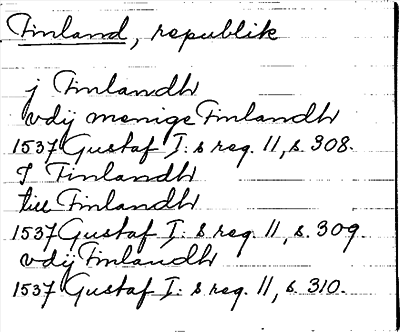 Finland, republik
j Finlandh
vdij menige Finlandh
1537 Gustaf I: s reg. 11, s. 308.
I Finlandh
till Finlandh
1537 Gustaf I: s reg. 11, s. 309.
vdij Finlandh
1537 Gustaf I: s reg. 11, s. 310.